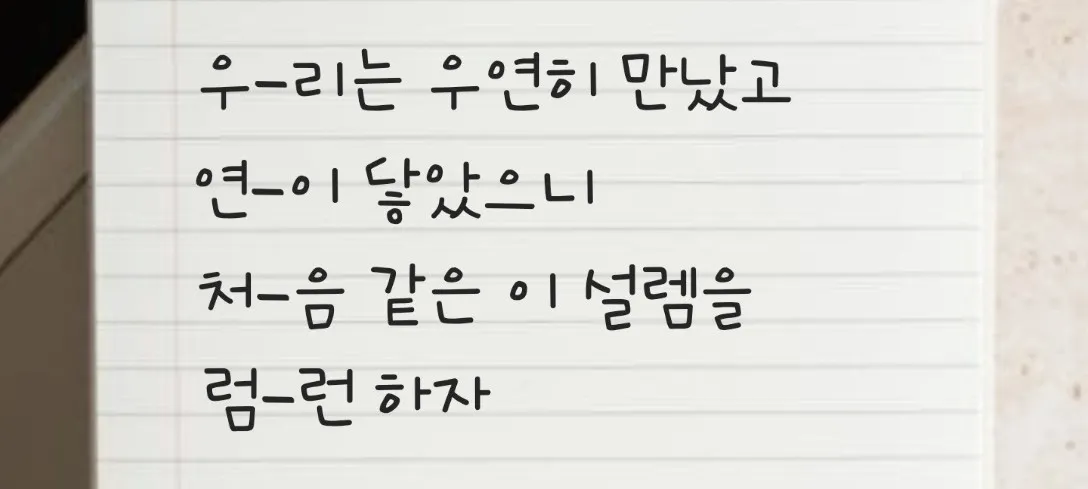 우-리는 우연히 만났고
연-이 닿았으니
처-음 같은 이 설렘을
럼-런 하자